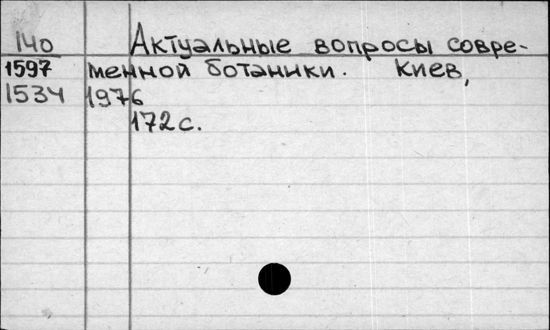 140 Актуальные вопросы совре-
1597 менной ботаники. Киев,
1534 1976
172 с.